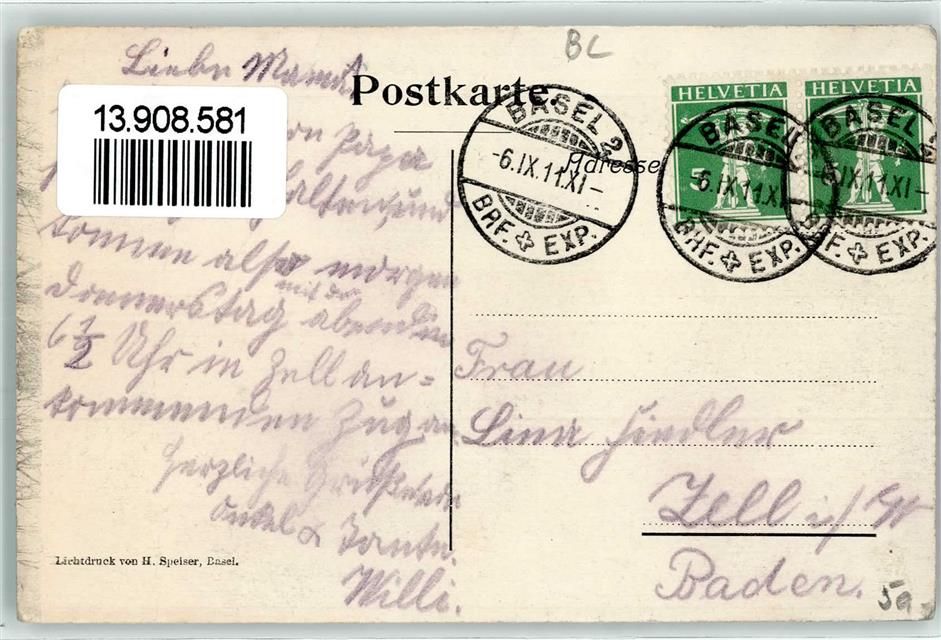 BL
Postkarte.
Adresse
BASEL 2
-6.IX.11.XI-
BRF. EXP.
HELVETIA
5
BASEL 2
-6.IX.11.XI-
BRF. EXP.
HELVETIA
BASEL 2
-6.IX.11.XI-
BRF. EXP.
13.908.581
Liebe Mama
von Papa
erhalten und
komme also morgen
Donnerstag abend
mit dem
6 1/2 Uhr in Zell an=
kommenden Zug an
herzliche Grüsse von
Onkel & Tante.
Willi.
Frau
Lina Fiedler
Zell i/W
Baden.
Lichtdruck von H. Speiser, Basel.
5a